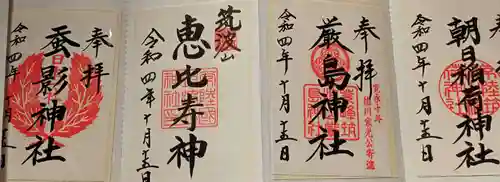 奉拝
蚕影神社
令和四年十月十五日
筑波山
恵比寿神
令和四年十月十五日
奉拝
厳島神社
令和四年十月十五日
朝日稲荷神社
令和四年十月十五日